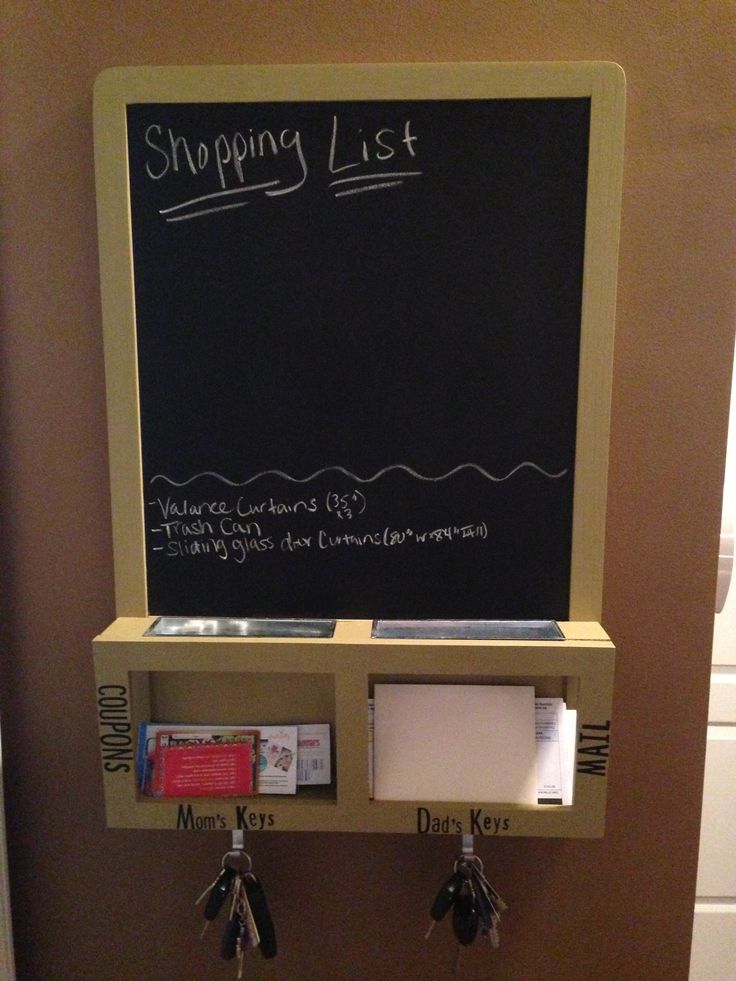 Shopping List
-Valance Curtains (35"
x3)
-Trash Can
-Sliding glass door Curtains (80" w x 84" Tall)
COUPONS
MAIL
Mom's Keys
Dad's Keys